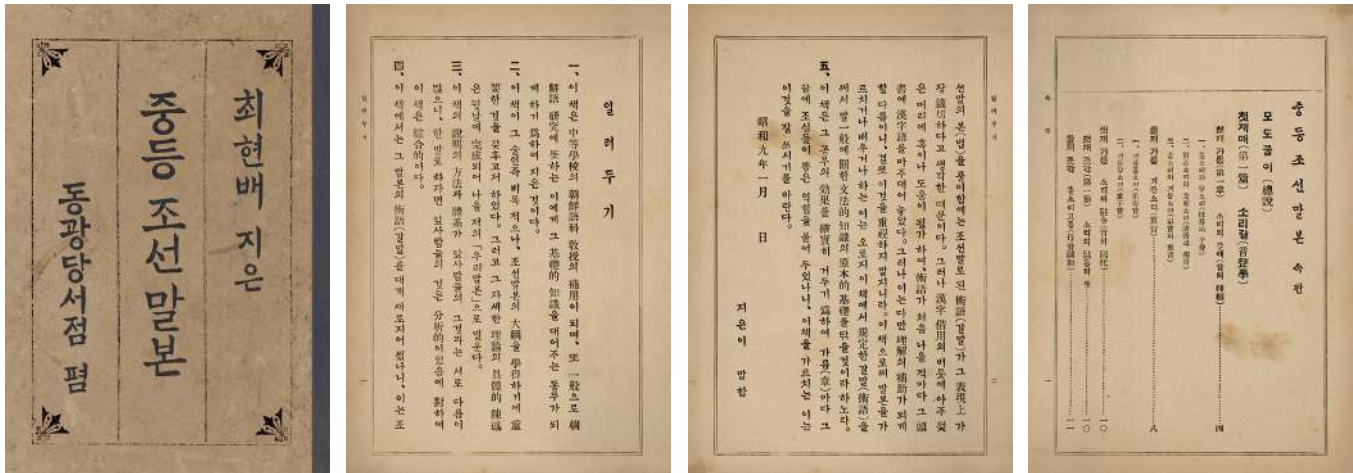 최현배 지은
중등 조선말본
동광당서점 폄
일러두기
一、이 책은 中等學校의 朝鮮語科 敎授의 補用이 되며, 또 一般으로 朝
鮮語 硏究에 뜻하는 이에게 그 基礎的 知識을 대어주는 동무가 되
게 하기 爲하여 지은 것이다.
二、이 책이 그 술인즉 비록 적으나, 조선말본의 大綱을 學得하기에 重
要한 것을 갖추고저 하였다. 그러고 그 자세한 理論의 具體的 陳述
은 뒷날에 完成되어 나올 저의 「우리말본」으로 밀운다.
三、이 책의 說明의 方法과 體系가 앞사람들의 그것과는 서로 다름이
많으니, 한 말로 하자면 앞사람들의 것은 分析的이었음에 對하여
이 책은 綜合的이다.
四、이 책에서는 그 말본의 術語(갈말)를 대개 새로지어 썼나니, 이는 조
일러두기
一
일러두기
二
선말의 본(법)을 풀이함에는 조선말로 된 術語(갈말)가 그 表現上 가
장 適切하다고 생각할 때문이다. 그러나 漢字 借用의 버릇에 아주 젖
은 머리에 혹이나 도움이 될가 하여, 術語가 처음 나올 적마다 그 頭
書에 漢字語를 마주대어 놓았다. 그러나 이는 다만 理解의 補助가 되게
할 따름이니, 결코 이것을 重視하지 말지니라. 이 책으로써 말본을 가
르치거나 배우거나 하는 이는 오로지 이 책에서 規定한 갈말(術語)을
써서 말 一般에 關한 文法的 知識의 原本的 基礎를 닦을것이라 하노라.
五、이 책은 그 공부의 效果를 確實히 거두기 爲하여, 가름(章)마다 그
끝에 조심들이 뽑은 익힘을 붙여 두었나니, 이책을 가르치는 이는
이것을 잘 쓰시기를 바란다.
昭和九年一月 日
지은이 말함
중등 조선말본 속판
모도풀이(總說)
첫재매(第一篇) 소리갈(音聲學)
첫재 가름(第一章) 소리의 갈래(音의 種類)……四
둘재 가름 거듭소리(重音)……八
첫재 가름 소리의 닮음(音의 同化)……一〇
一